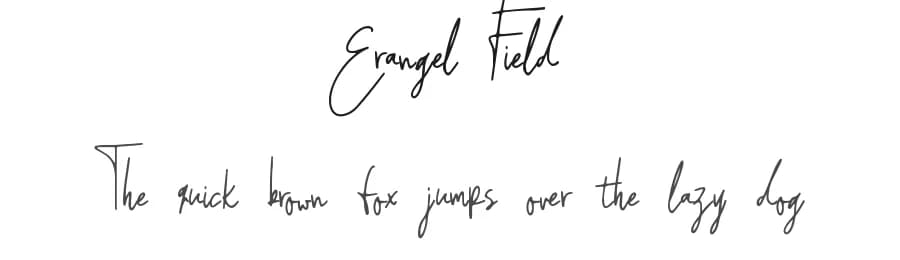 Erangel Field
The quick brown fox jumps over the lazy dog